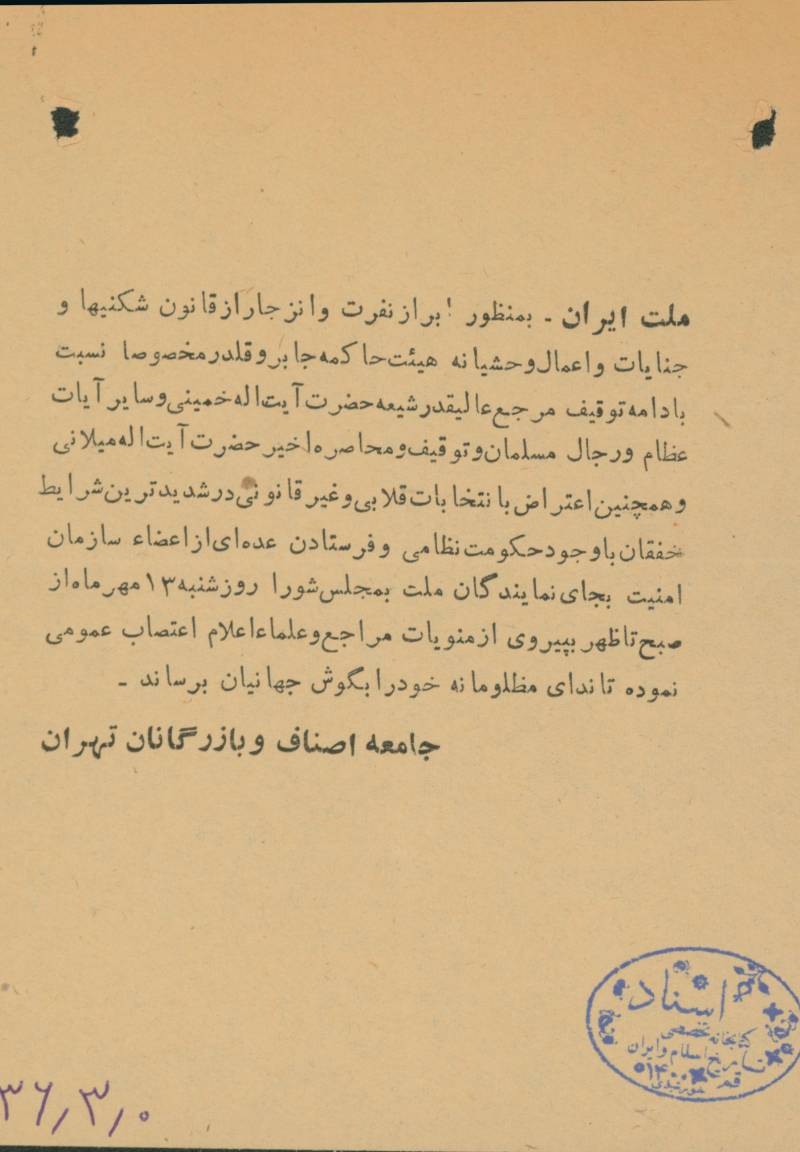 ملت ایران - بمنظور ابراز نفرت وانزجار از قانون شکنیها و
جنایات واعمال وحشیانه هیئت حاکمه جابر وقلدر مخصوصا نسبت
بادامه توقیف مرجع عالیقدر شیعه حضرت آیت اله خمینی وسایر آیات
عظام ورجال مسلمان وتوقیف ومحاصره اخیر حضرت آیت اله میلانی
وهمچنین اعتراض بانتخابات قلابی وغیر قانونی در شدیدترین شرایط
خفقان باوجود حکومت نظامی وفرستادن عده ای از اعضاء سازمان
امنیت بجای نمایندگان ملت بمجلس شورا روز شنبه ۱۳ مهر ماه از
صبح تا ظهر بپیروی از منویات مراجع وعلماء اعلام اعتصاب عمومی
نموده تا ندای مظلومانه خود را بگوش جهانیان برساند -
جامعه اصناف وبازرگانان تهران
اسناد
کتابخانه تخصصی
تاریخ اسلام و ایران
قم
۳۶٫۳٫۰